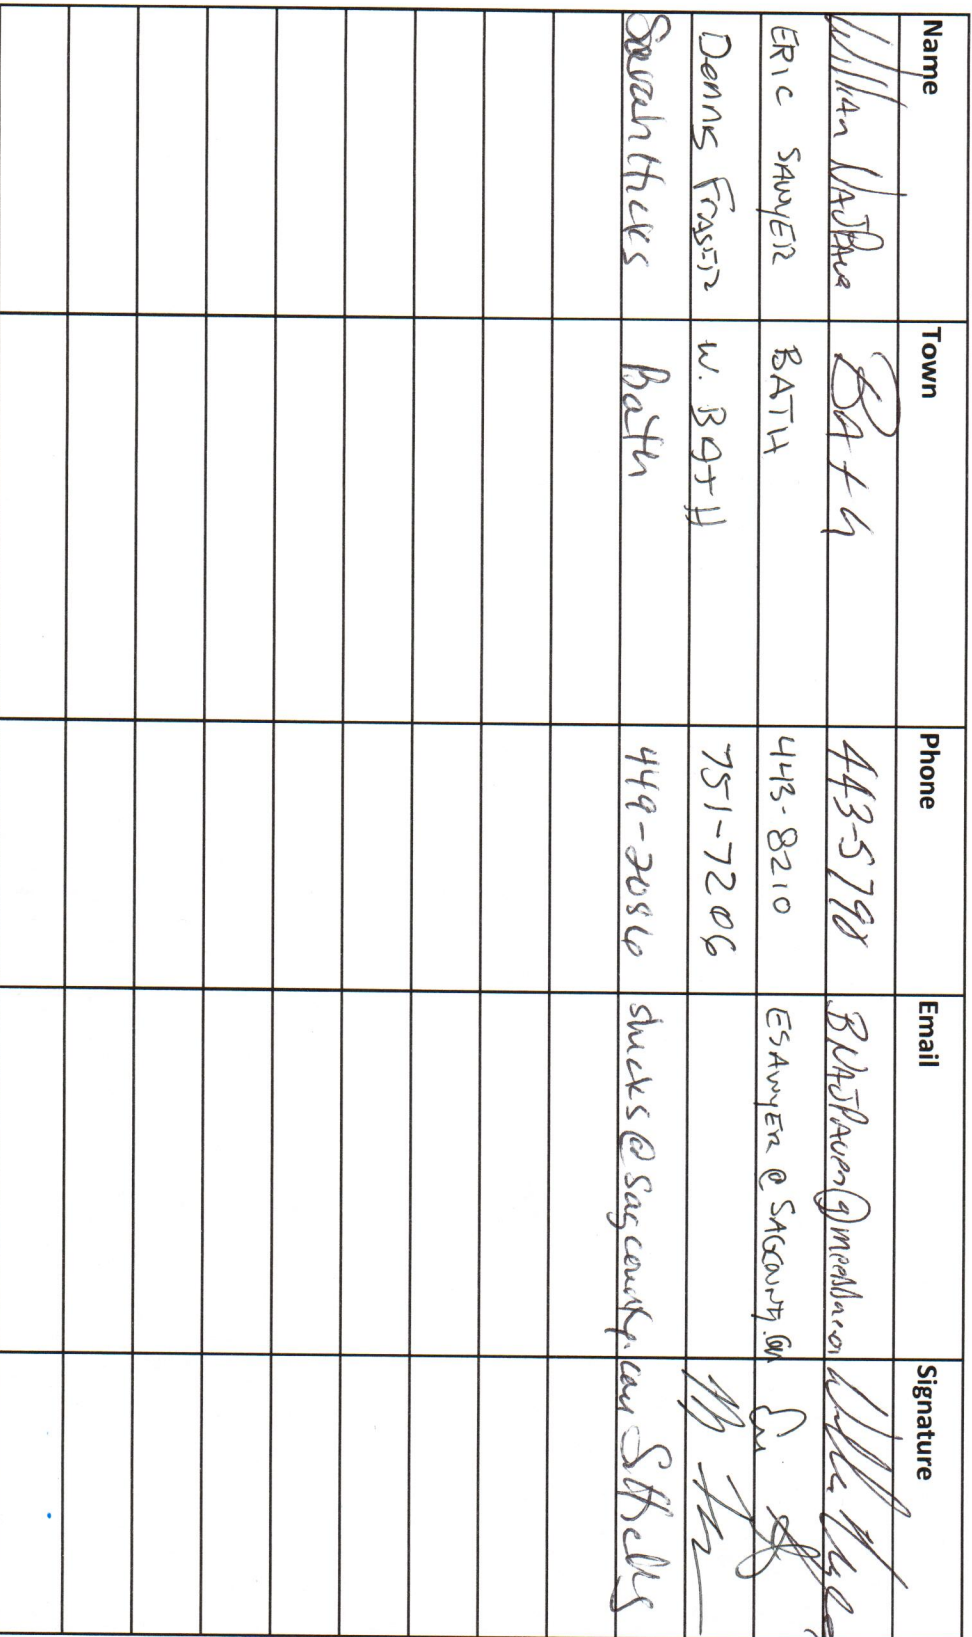 Name Town Phone Email Signature
William Bath 443-5790
ERIC SAWYER BATH 443-8210 ESAWYER@SAGCOUNTY.COM
Dennis FRASER W. BATH 751-7206
Sarah Hicks Bath 449-2086 shicks@sagcounty.com SHicks